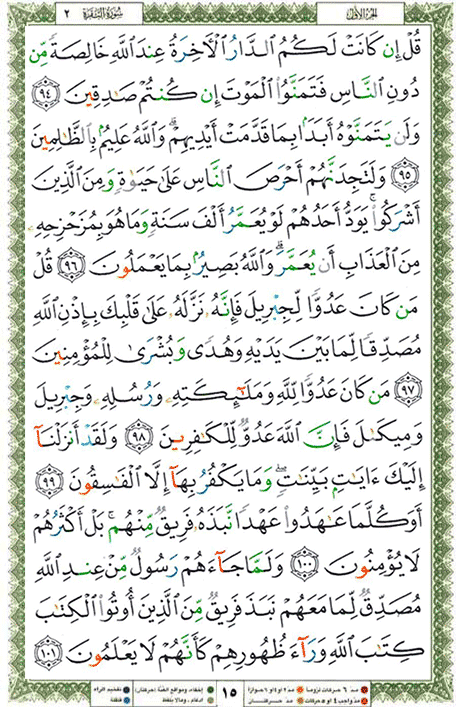 الجزء الأول سورة البقرة ٢
قُلْ إِن كَانَتْ لَكُمُ ٱلدَّارُ ٱلْـَٔاخِرَةُ عِندَ ٱللَّهِ خَالِصَةً مِّن
دُونِ ٱلنَّاسِ فَتَمَنَّوُا۟ ٱلْمَوْتَ إِن كُنتُمْ صَـٰدِقِينَ ٩٤
وَلَن يَتَمَنَّوْهُ أَبَدًۢا بِمَا قَدَّمَتْ أَيْدِيهِمْ ۗ وَٱللَّهُ عَلِيمٌۢ بِٱلظَّـٰلِمِينَ
٩٥ وَلَتَجِدَنَّهُمْ أَحْرَصَ ٱلنَّاسِ عَلَىٰ حَيَوٰةٍ وَمِنَ ٱلَّذِينَ
أَشْرَكُوا۟ ۚ يَوَدُّ أَحَدُهُمْ لَوْ يُعَمَّرُ أَلْفَ سَنَةٍ وَمَا هُوَ بِمُزَحْزِحِهِۦ
مِنَ ٱلْعَذَابِ أَن يُعَمَّرَ ۗ وَٱللَّهُ بَصِيرٌۢ بِمَا يَعْمَلُونَ ٩٦ قُلْ
مَن كَانَ عَدُوًّا لِّجِبْرِيلَ فَإِنَّهُۥ نَزَّلَهُۥ عَلَىٰ قَلْبِكَ بِإِذْنِ ٱللَّهِ
مُصَدِّقًا لِّمَا بَيْنَ يَدَيْهِ وَهُدًى وَبُشْرَىٰ لِلْمُؤْمِنِينَ
٩٧ مَن كَانَ عَدُوًّا لِّلَّهِ وَمَلَـٰٓئِكَتِهِۦ وَرُسُلِهِۦ وَجِبْرِيلَ
وَمِيكَىٰلَ فَإِنَّ ٱللَّهَ عَدُوٌّ لِّلْكَـٰفِرِينَ ٩٨ وَلَقَدْ أَنزَلْنَآ
إِلَيْكَ ءَايَـٰتٍۭ بَيِّنَـٰتٍ ۖ وَمَا يَكْفُرُ بِهَآ إِلَّا ٱلْفَـٰسِقُونَ ٩٩
أَوَكُلَّمَا عَـٰهَدُوا۟ عَهْدًا نَّبَذَهُۥ فَرِيقٌ مِّنْهُم ۚ بَلْ أَكْثَرُهُمْ
لَا يُؤْمِنُونَ ١٠٠ وَلَمَّا جَآءَهُمْ رَسُولٌ مِّنْ عِندِ ٱللَّهِ
مُصَدِّقٌ لِّمَا مَعَهُمْ نَبَذَ فَرِيقٌ مِّنَ ٱلَّذِينَ أُوتُوا۟ ٱلْكِتَـٰبَ
كِتَـٰبَ ٱللَّهِ وَرَآءَ ظُهُورِهِمْ كَأَنَّهُمْ لَا يَعْلَمُونَ ١٠١
مد ٦ حركات لزوماً مد ٢ أو ٤ أو ٦ جوازاً ١٥ إخفاء، ومواقع الغنة (حركتان) تفخيم الراء
مد واجب ٤ أو ٥ حركات مد حركتان إدغام، وما لا يلفظ قلقلة